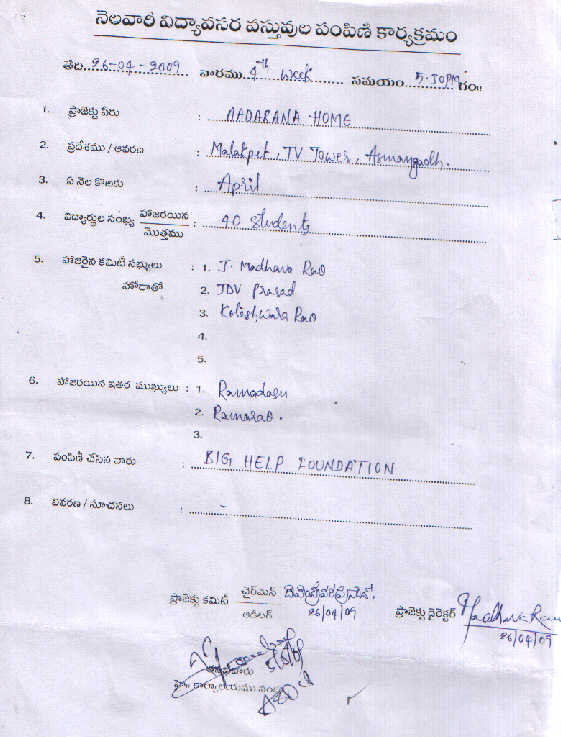 నెలవారీ విద్యావసర వస్తువుల పంపిణీ కార్యక్రమం
తేది. 26-04-2009 వారము 4th week సమయం 5-30PM గం॥
1. ప్రాజెక్టు పేరు : AADARANA HOME
2. ప్రదేశము / ఆవరణ : Malakpet, TV Tower, Asmangadh.
3. ఏ నెల కొఱకు : April
4. విద్యార్థుల సంఖ్య హాజరయిన / మొత్తము : 40 Students
5. హాజరైన కమిటీ సభ్యులు : 1. J. Madhava Rao
హోదాతో 2. JDV Prasad
3. Koteshwara Rao
4.
5.
6. హాజరయిన ఇతర ముఖ్యులు : 1. Ramadasu
2. Ramarao.
3.
7. పంపిణీ చేసిన వారు : BIG HELP FOUNDATION
8. వివరణ / సూచనలు :
ప్రాజెక్టు కమిటీ ఛైర్‌మెన్ ప్రాజెక్టు డైరెక్టర్ Madhava Rao
26/04/09 26/04/09